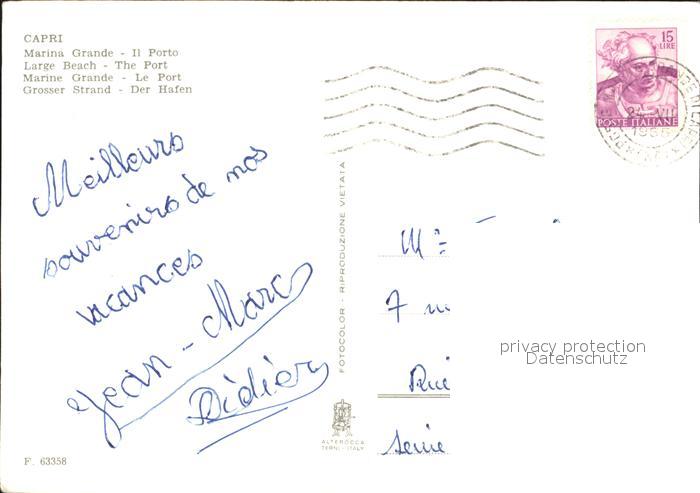 CAPRI
Marina Grande - Il Porto
Large Beach - The Port
Marine Grande - Le Port
Grosser Strand - Der Hafen
15
LIRE
POSTE ITALIANE
1966
Meilleurs
souvenirs de nos
vacances
Jean-Marc
Didier
FOTOCOLOR - RIPRODUZIONE VIETATA
7
privacy protection
Datenschutz
Seine
ALTEROCCA
TERNI-ITALY
F. 63358